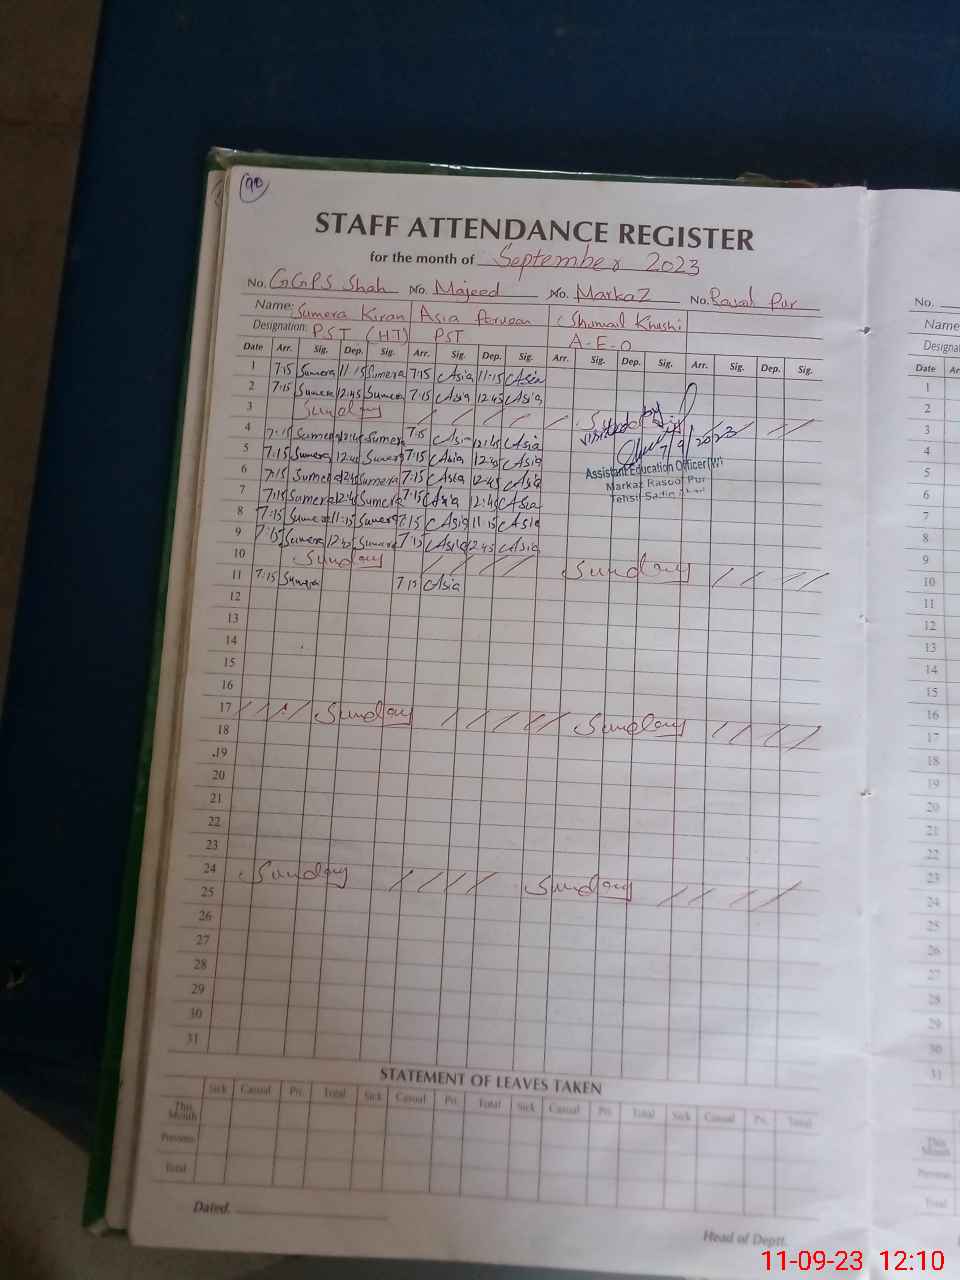 90
STAFF ATTENDANCE REGISTER
for the month of September 2023
No. GGPS Shah No. Majeed No. Markaz No. Rasul Pur
Name: Sumera Kiran Asia Parveen Shumal Khushi
Designation: PST (HT) PST A-E-O
Date Arr. Sig. Dep. Sig. Arr. Sig. Dep. Sig. Arr. Sig. Dep. Sig. Arr. Sig. Dep. Sig.
1 7:15 Sumera 11:15 Sumera 7:15 Asia 11:15 Asia
2 7:15 Sumera 12:45 Sumera 7:15 Asia 12:45 Asia
3 Sunday / / / / / Sunday / / /
4 7:15 Sumera 12:45 Sumera 7:15 Asia 12:45 Asia
5 7:15 Sumera 12:45 Sumera 7:15 Asia 12:45 Asia
6 7:15 Sumera 12:45 Sumera 7:15 Asia 12:45 Asia
7 7:15 Sumera 12:45 Sumera 7:15 Asia 12:45 Asia
8 7:15 Sumera 11:15 Sumera 7:15 Asia 11:15 Asia
9 7:15 Sumera 12:45 Sumera 7:15 Asia 12:45 Asia
10 Sunday / / / / Sunday / / / /
11 7:15 Sumera 7:15 Asia
12
13
14
15
16
17 / / / / Sunday / / / / / / Sunday / / / / /
18
19
20
21
22
23
24 Sunday / / / / Sunday / / / /
25
26
27
28
29
30
31
7/9/2023
Assistant Education Officer (W)
Markaz Rasool Pur
Tehsil Sadiq
STATEMENT OF LEAVES TAKEN
Sick Casual Pri. Total Sick Casual Pri. Total Sick Casual Pri. Total Sick Casual Pri. Total
This Month
Previous
Total
Dated.
Head of Deptt.
No.
Name
Designa
Date Ar
1
2
3
4
5
6
7
8
9
10
11
12
13
14
15
16
17
18
19
20
21
22
23
24
25
26
27
28
29
30
31
This Month
Previous
Total
11-09-23 12:10